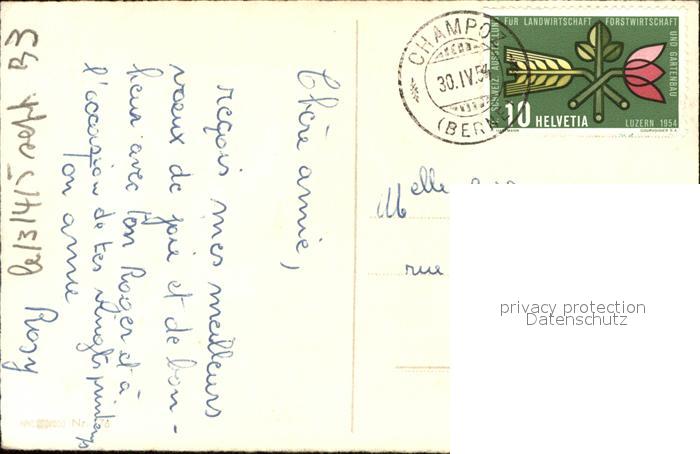 Chère amie,
reçois mes meilleurs
voeux de joie et de bon-
heur avec ton Roger et à
l'occasion de tes vingts printemps
Ton amie
Rosy
sept. 53
CHAMPO
30.IV.54
(BERN
SCHWEIZ. AUSSTELLUNG FÜR LANDWIRTSCHAFT FORSTWIRTSCHAFT UND GARTENBAU
10 HELVETIA LUZERN 1954
COURVOISIER S.A.
Melle
rue
privacy protection
Datenschutz